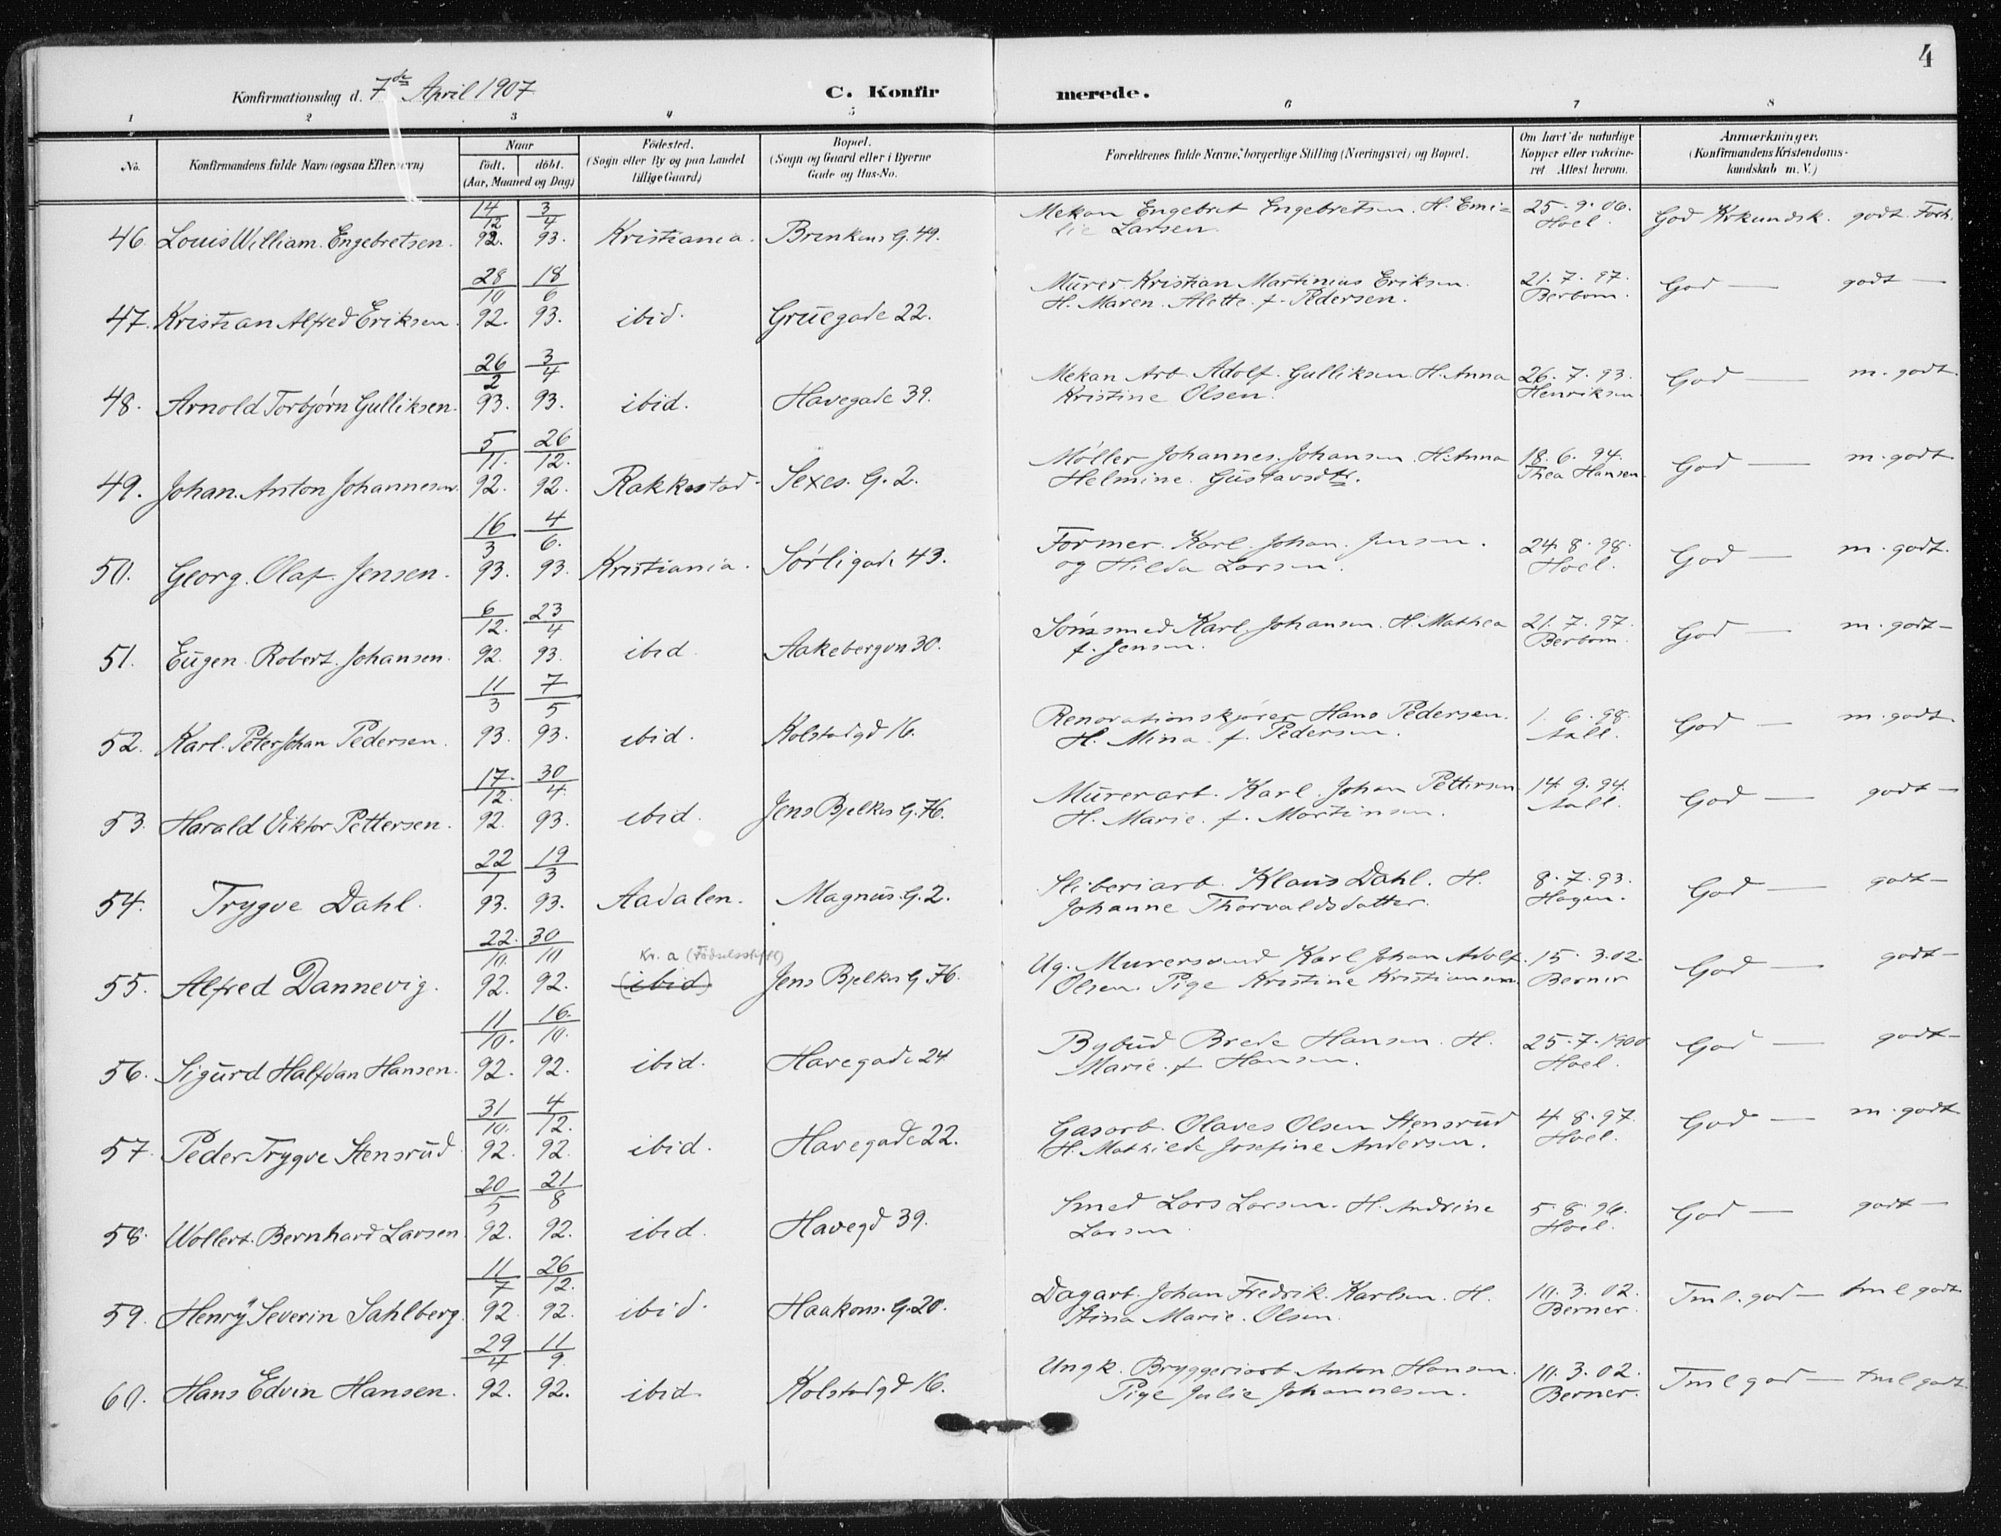 4
Konfirmationsdag d. 7de April 1907
C. Konfirmerede.
1 2 3 4 5 6 7 8
No. Konfirmandens fulde Navn (ogsaa Efternavn) Naar födt. döbt. (Aar, Maaned og Dag) Födested. (Sogn eller By og paa Landet tillige Gaard) Bopæl. (Sogn og Gaard eller i Byerne Gade og Hus-No. Forældrenes fulde Navne, borgerlige Stilling (Næringsvei) og Bopæl. Om havt de naturlige Kopper eller vakcineret Attest herom. Anmærkninger. (Konfirmandens Kristendomskundskab m. V.)
46 Louis William Engebretsen 14/12 92. 3/4 93. Kristiania. Brinkens G. 49. Mekan Engebret Engebretsen. H. Emilie Larsen. 25.9.06. Hoel. God Krkundsk. godt Forh.
47. Kristian Alfred Eriksen. 28/10 92. 18/6 93. ibid. Gruegade 22. Murer Kristian Martinius Eriksen. H. Maren Alette f. Pedersen. 21.7.97. Berbom. God — godt —
48. Arnold Torbjørn Gulliksen. 26/2 93. 3/4 93. ibid. Havegade 39. Mekan Arb. Adolf Gulliksen. H. Anna Kristine Olsen. 26.7.93. Henriksen. God — m. godt.
49. Johan Anton Johannesen. 5/11. 92. 26/12. 92. Rakkestad. Sexes. G. 2. Møller Johannes Johansen. H. Anna Helmine Gustavsdtr. 18.6.94. Thea Hansen. God — m. godt
50. Georg Olaf Jensen. 16/3 93. 4/6. 93. Kristiania. Sørligade 43. Former Karl Johan Jensen. og Hilda Larsen. 24.8.98. Hoel. God — m. godt.
51. Eugen Robert Johansen. 6/12. 92. 23/4 93. ibid. Aakebergvn 30. Karl Johansen. H. Mathea f. Jensen. 21.7.97. Berbom. God — m. godt —
52. Karl Peter Johan Pedersen. 11/3 93. 7/5 93. ibid. Kolstadgd 16. Renovationskjører Hans Pedersen. H. Mina f. Pedersen. 1.6.98. Aall. God — m. godt.
53. Harald Viktor Pettersen. 17/12. 92. 30/4. 93. ibid. Jens Bjelkes G. 76. Murerarb. Karl Johan Pettersen H. Marie f. Martinsen. 14.9.94. Aall. God — godt —
54. Trygve Dahl. 22/1 93. 19/3 93. Aadalen. Magnus G. 2. Sliberiarb. Klaus Dahl. H. Johanne Thorvaldsdatter. 8.7.93. Hagen. God — godt —
55. Alfred Dannevig. 22/10. 92. 30/10 92. Kr.a (Fødselsstift) (ibid) Jens Bjelkes G 76. Ug. Murersvend Karl Johan Adolf Olsen. Pige Kristine Kristiansen. 15.3.02. Berner God — godt —
56. Sigurd Halfdan Hansen. 11/10. 92. 16/10. 92. ibid. Havegade 24 Bybud Brede Hansen. H. Marie f. Hansen. 25.7.1900 Hoel. God — godt —
57. Peder Trygve Stensrud 31/10. 92. 4/12. 92. ibid. Havegade 22. Gasarb. Olaves Olsen Stensrud H. Mathilde Josefine Andersen. 4.8.97. Hoel. God — m. godt
58. Wollert Bernhard Larsen 20/5 92. 21/8 92. ibid. Havegd 39. Smed Lars Larsen. H. Andrine Larsen 5.8.96. Hoel. God — godt —
59. Henry Severin Sahlberg. 11/7 92. 26/12. 92. ibid. Haakons G. 20. Dagarb. Johan Fredrik Karlsen. H. Stina Marie Olsen. 10.3.02. Berner. Tml. god — tml godt
60. Hans Edvin Hansen. 29/4 92. 11/9. 92. ibid. Kolstadgd 16. Ungk. Bryggeriarb Anton Hansen. Pige Julie Johannesen. 10.3.02. Berner. Tml god — tml godt.